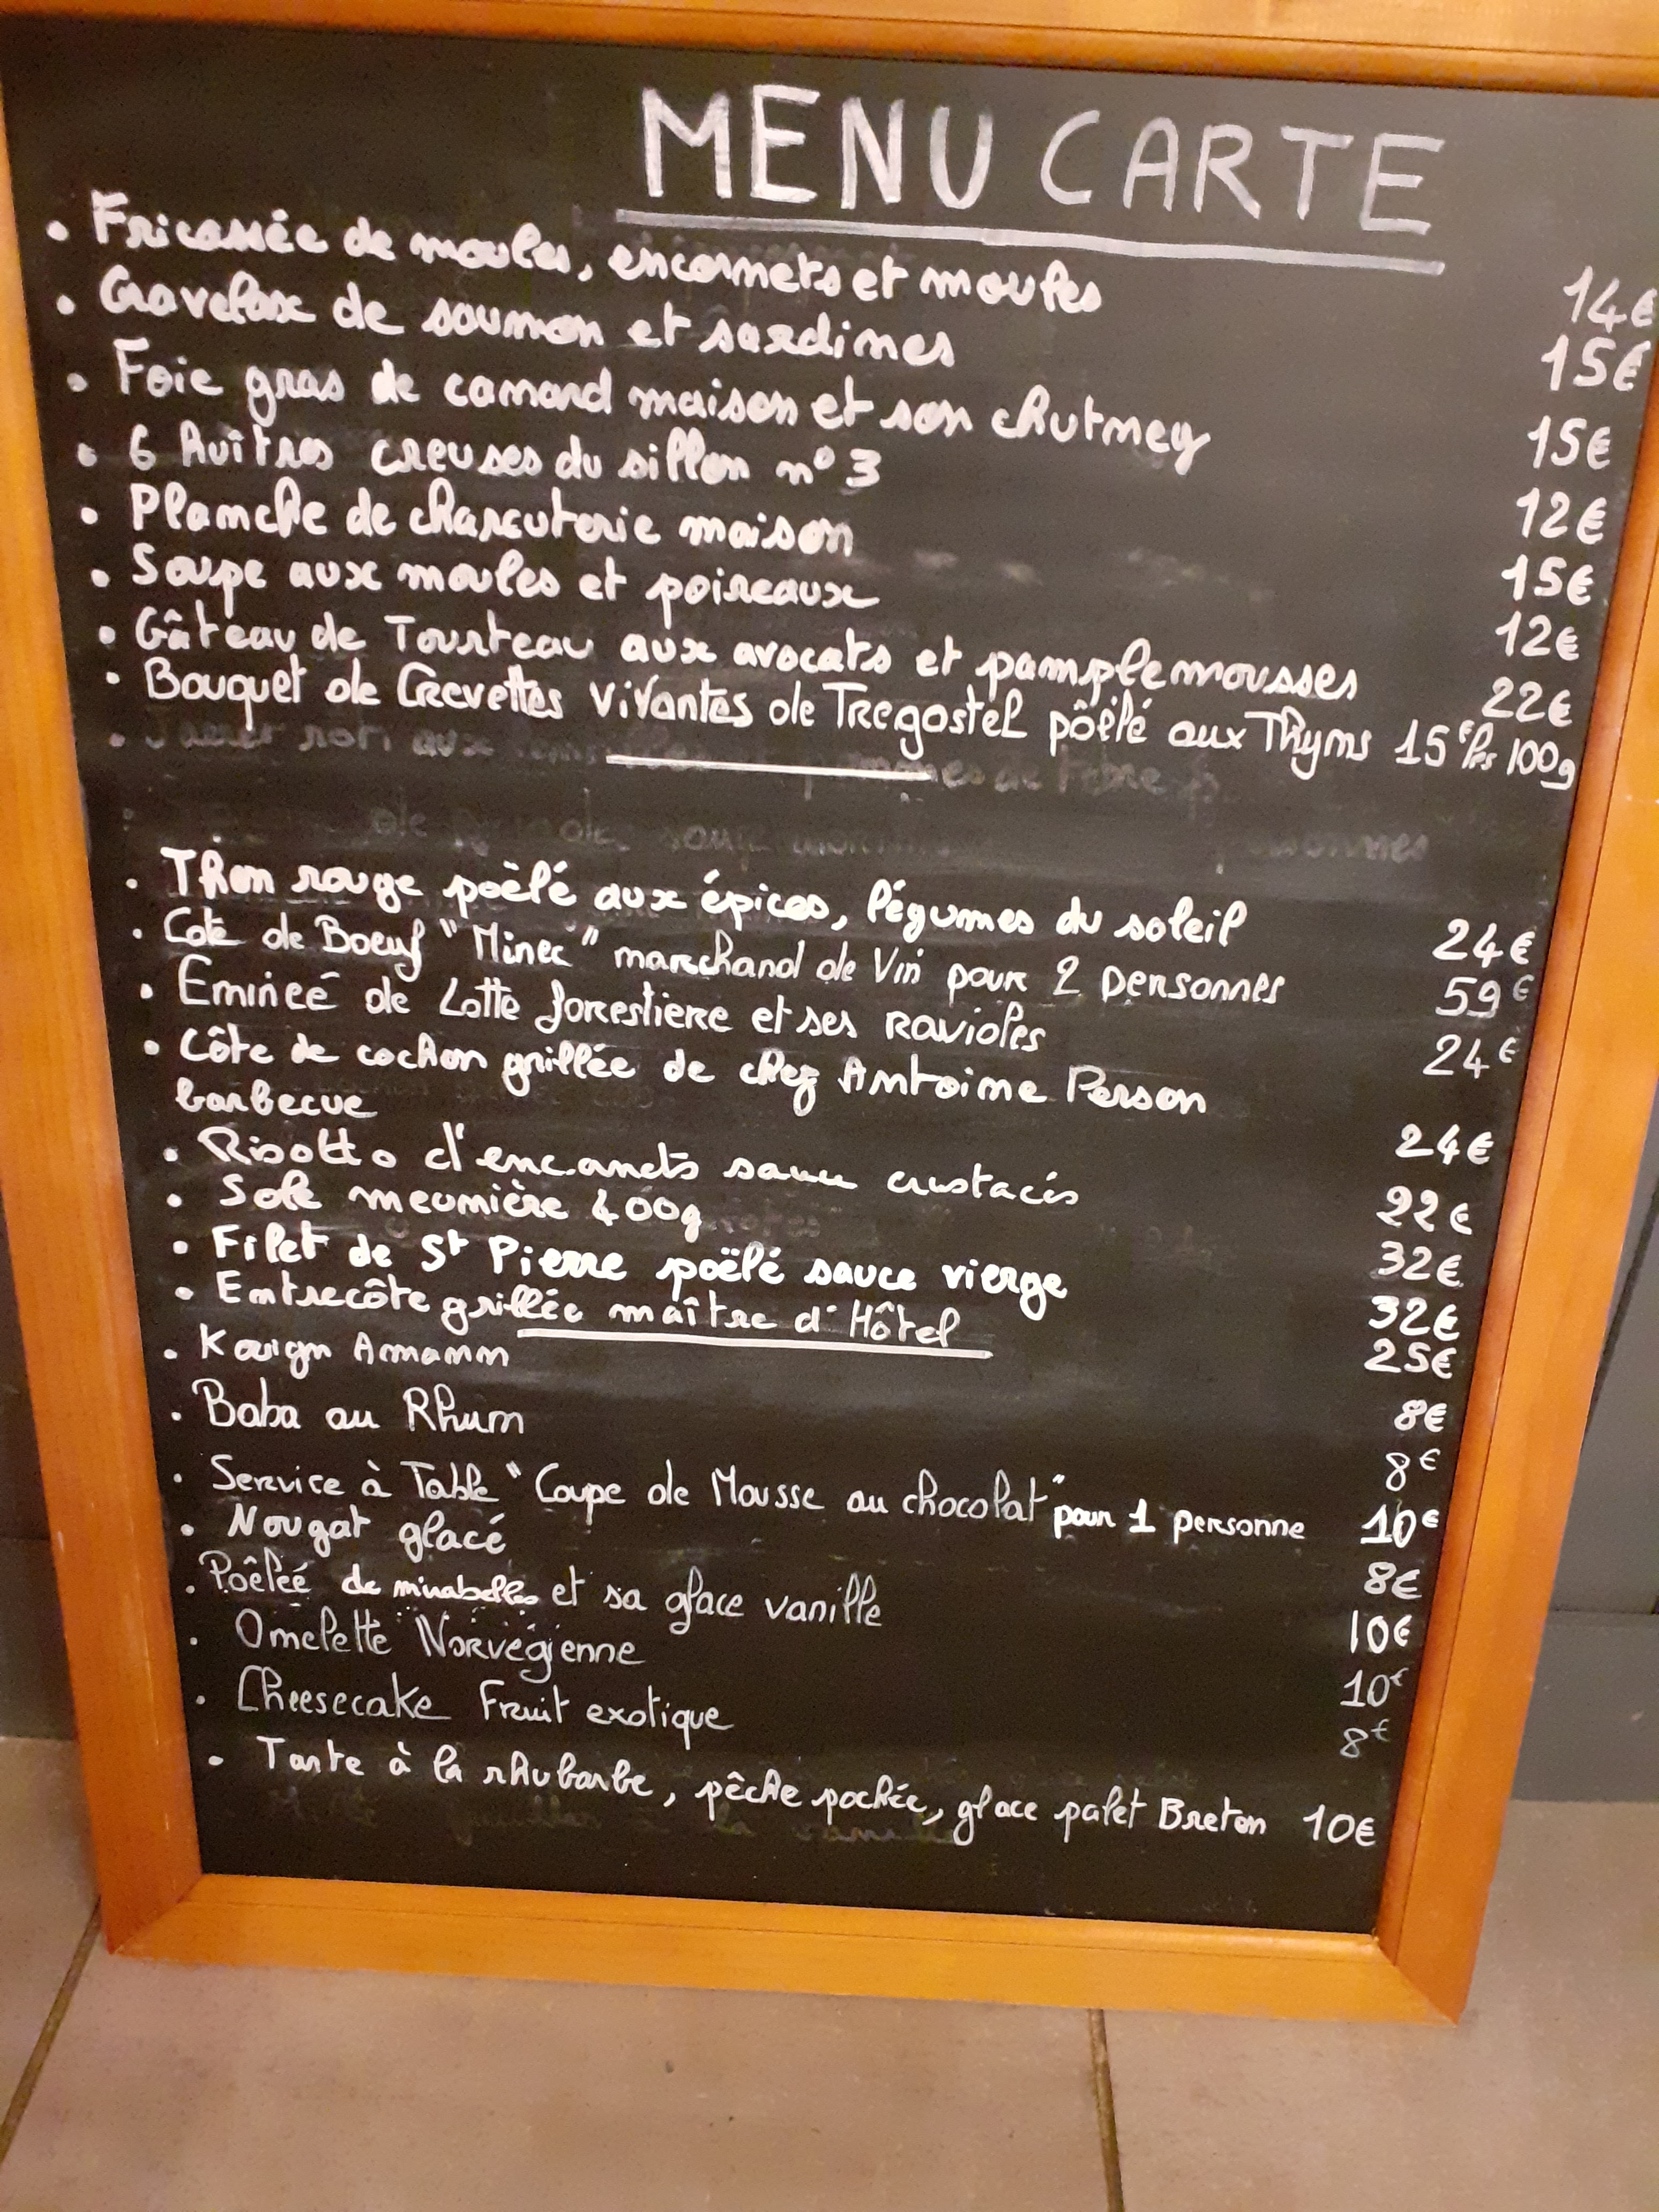 MENU CARTE
• Fricassée de moules, encornets et moules 14€
• Gravelax de saumon et sardines 15€
• Foie gras de canard maison et son chutney 15€
• 6 huîtres creuses du sillon n° 3 12€
• Planche de charcuterie maison 15€
• Soupe aux moules et poireaux 12€
• Gâteau de Tourteau aux avocats et pamplemousses 22€
• Bouquet de Crevettes vivantes de Tregastel pôêlé aux Thyms 15€ les 100g
• Thon rouge poêlé aux épices, légumes du soleil 24€
• Cote de Boeuf "Minec" marchand de Vin pour 2 personnes 59€
• Emincé de Lotte forestiere et ses Ravioles 24€
• Côte de cochon grillée de chez Antoine Person
barbecue 24€
• Risotto d'encornets sauce crustacés 22€
• Sole meunière 400g 32€
• Filet de St Pierre poëlé sauce vierge 32€
• Entrecôte grillée maître d'Hôtel 25€
• Kouign Amann 8€
• Baba au Rhum 8€
• Service à Table "Coupe de Mousse au chocolat" pour 1 personne 10€
• Nougat glacé 8€
• Poêleé de mirabelles et sa glace vanille 10€
• Omelette Norvégienne 10€
• Cheesecake Fruit exotique 8€
• Tarte à la rhubarbe, pêche pochée, glace palet Breton 10€